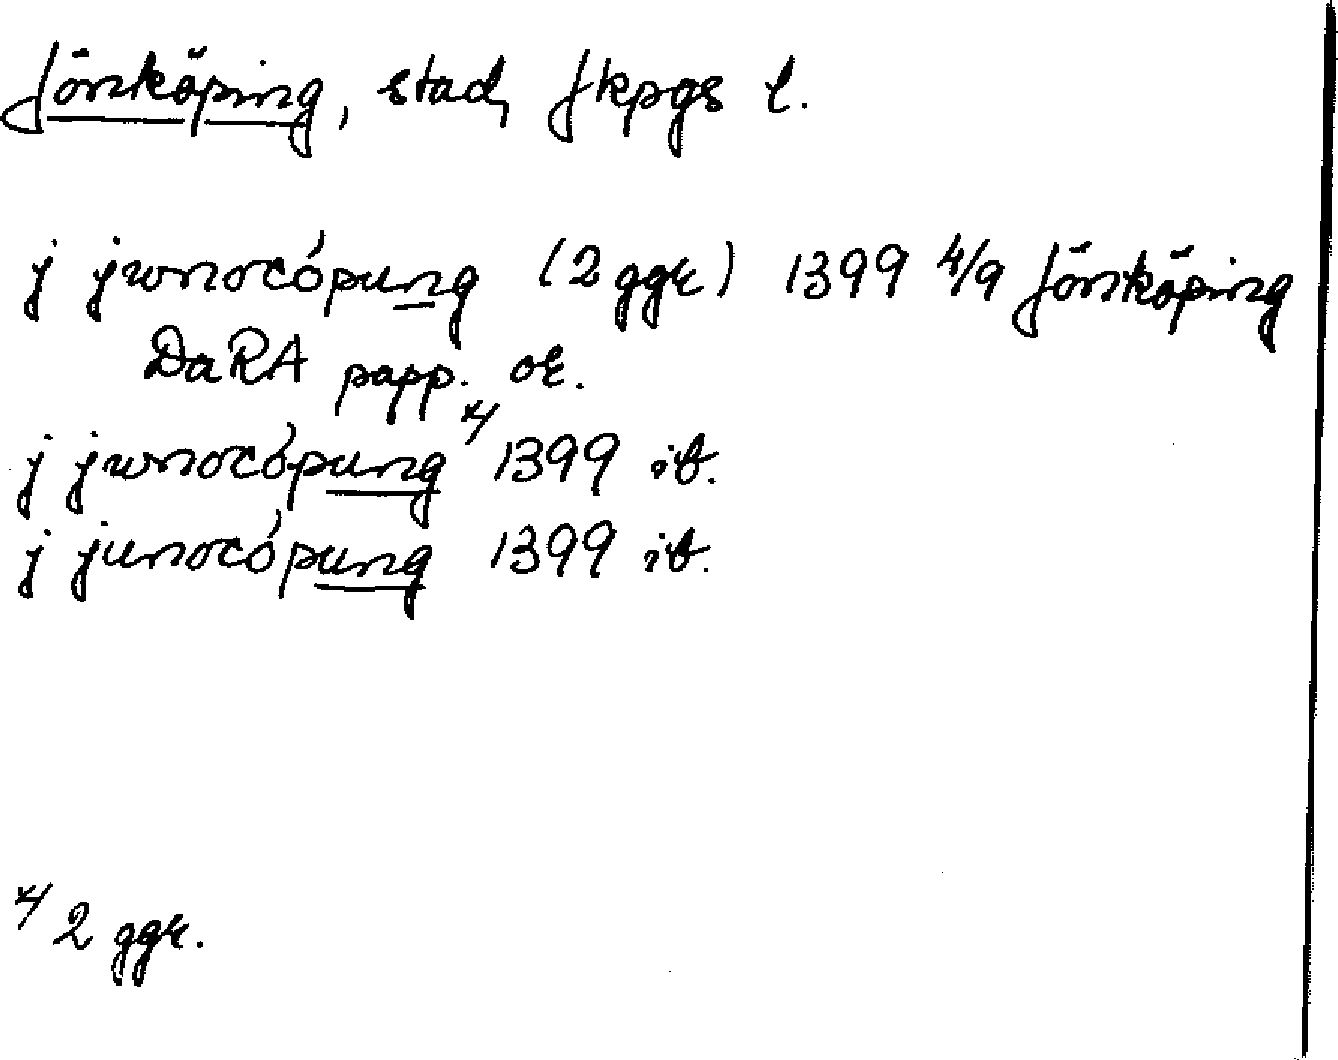 Jönköping, stad, Jkpgs l.
j junocópung (2 ggr) 1399 4/9 Jönköping
DaRA papp. or.
j junocópung x/ 1399 ib.
j junocópung 1399 ib.
x/ 2 ggr.